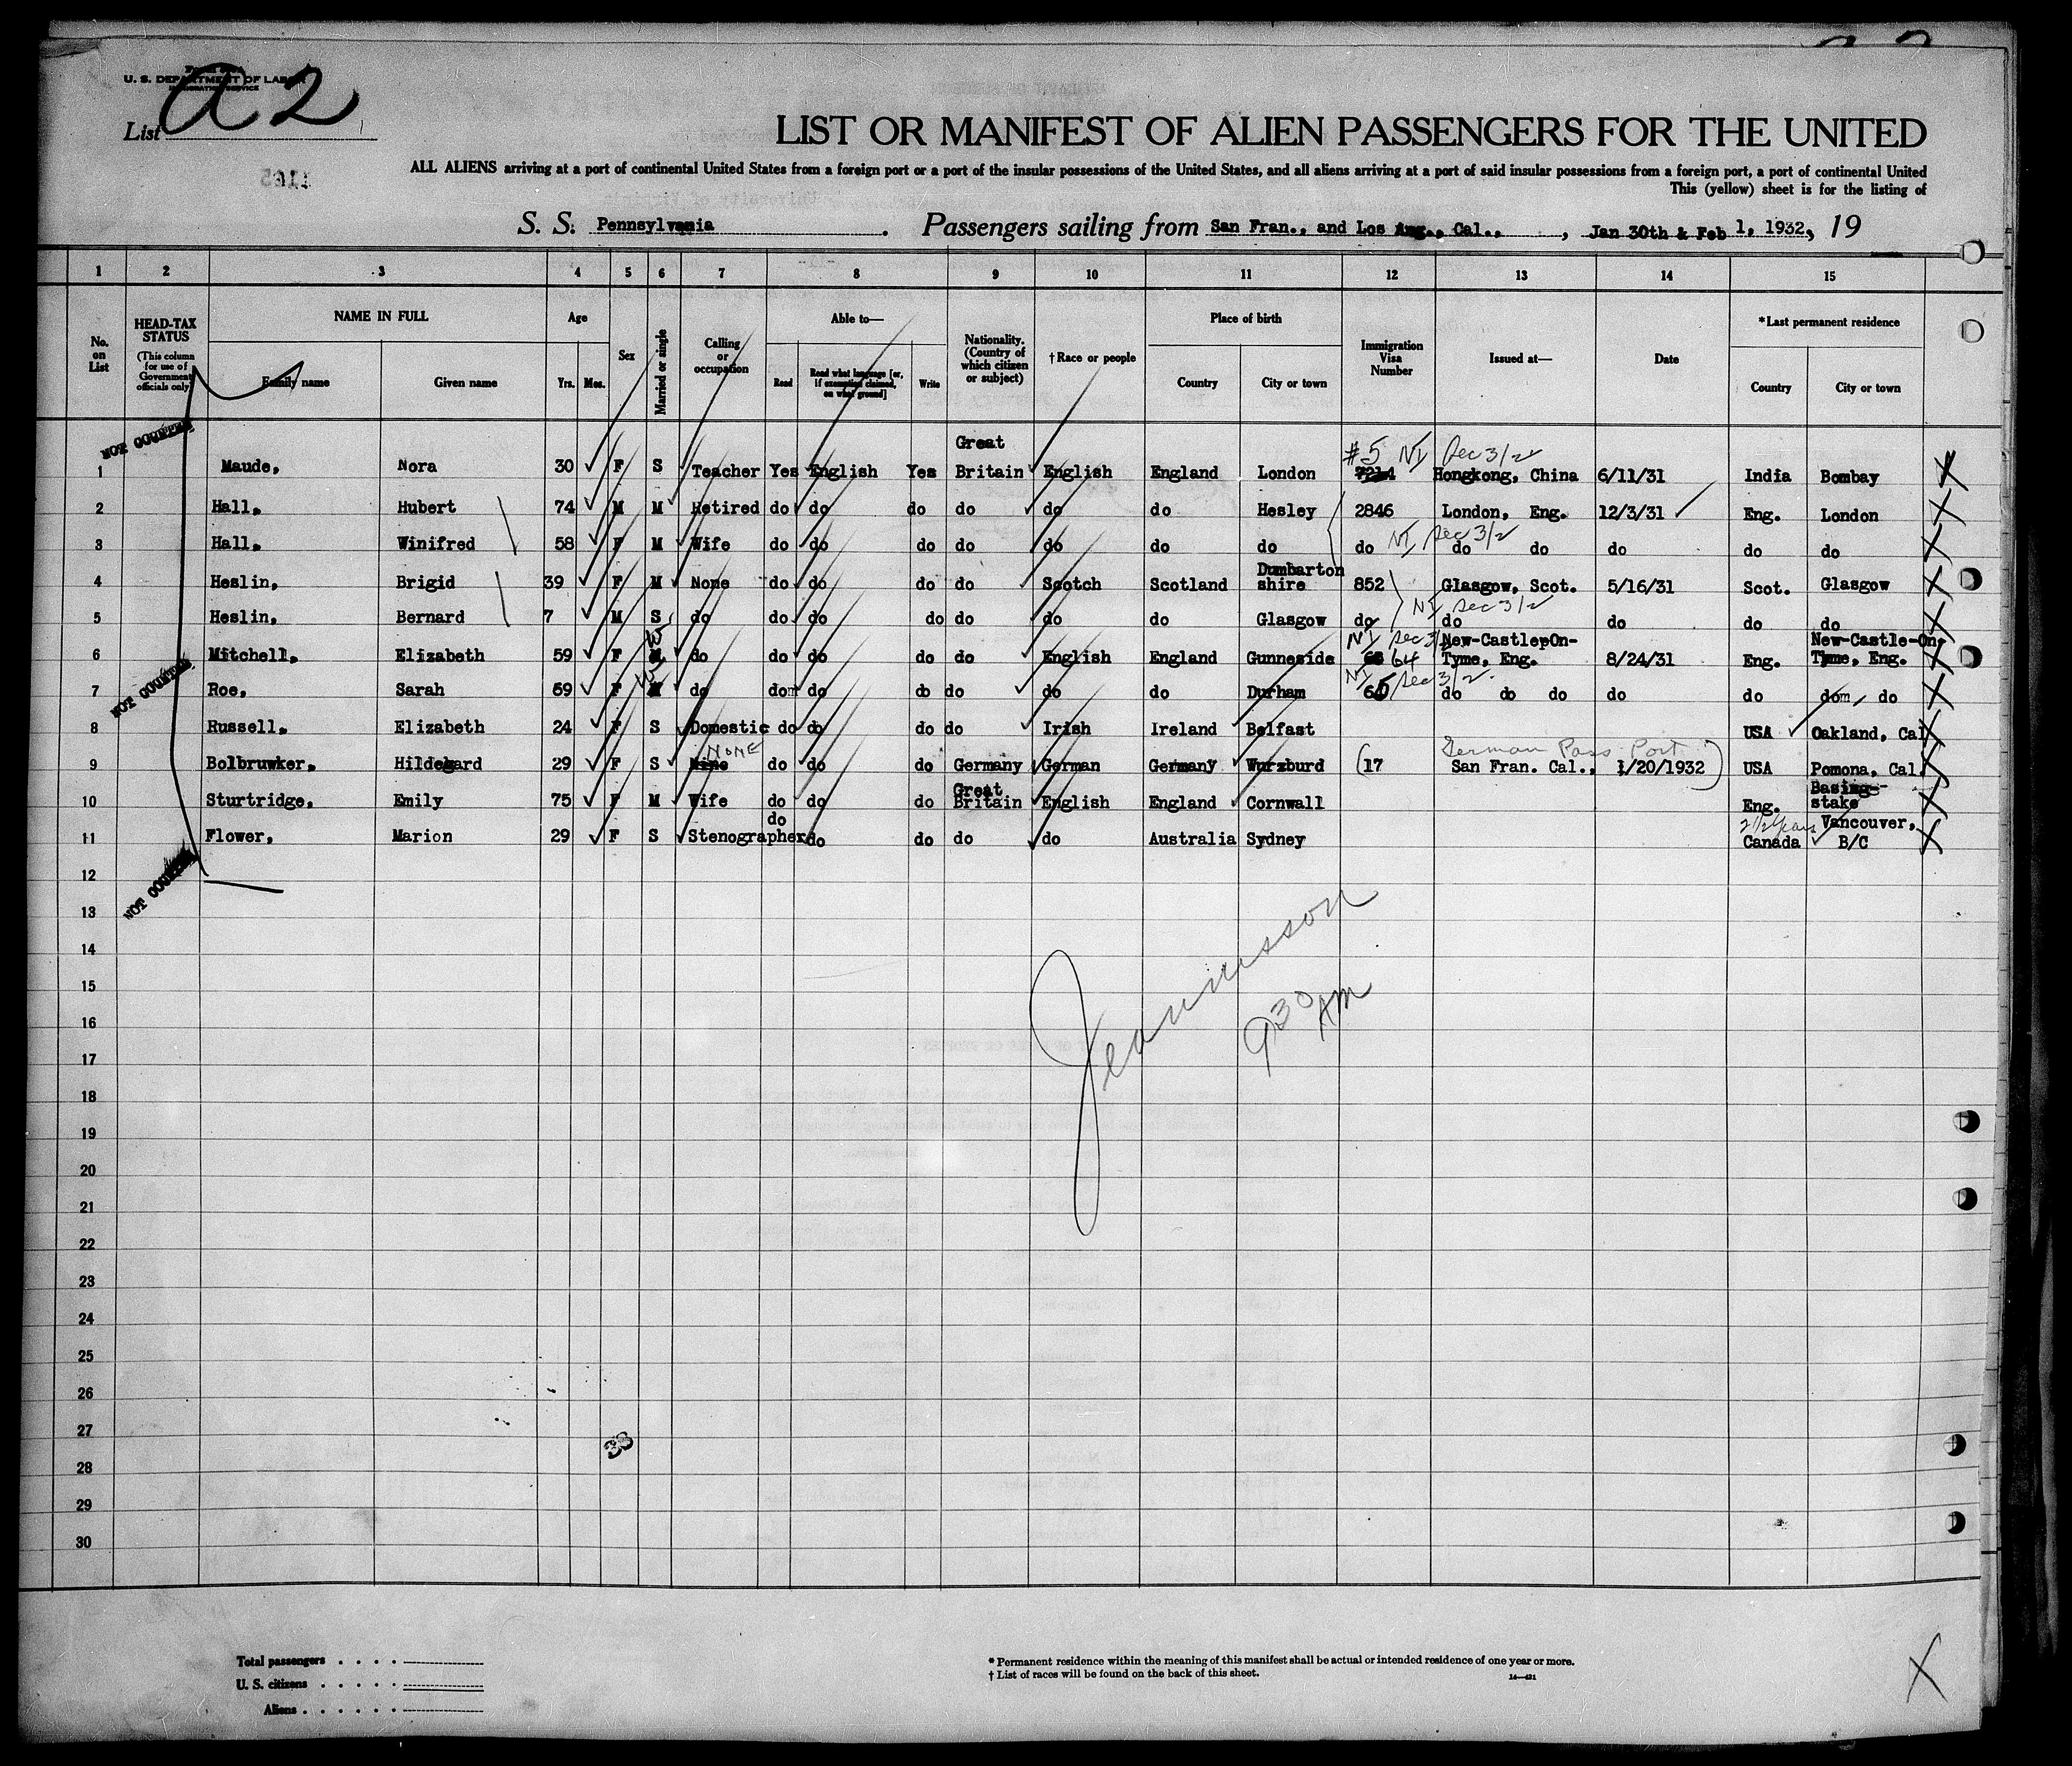 U. S. DEPARTMENT OF LABOR
IMMIGRATION SERVICE
List a 2
LIST OR MANIFEST OF ALIEN PASSENGERS FOR THE UNITED
ALL ALIENS arriving at a port of continental United States from a foreign port or a port of the insular possessions of the United States, and all aliens arriving at a port of said insular possessions from a foreign port, a port of continental United
This (yellow) sheet is for the listing of
S. S. Pennsylvania . Passengers sailing from San Fran., and Los Ang., Cal., , Jan 30th & Feb 1, 1932, 19
1 2 3 4 5 6 7 8 9 10 11 12 13 14 15
No. on List
HEAD-TAX STATUS (This column for use of Government officials only)
NAME IN FULL Family name Given name
Age Yrs. Mos.
Sex
Married or single
Calling or occupation
Able to— Read Read what language [or, if exemption claimed, on what ground] Write
Nationality. (Country of which citizen or subject)
†Race or people
Place of birth Country City or town
Immigration Visa Number
Issued at—
Date
*Last permanent residence Country City or town
NOT COUNTED
Great #5 NI Sec 3/2
1 Maude, Nora 30 F S Teacher Yes English Yes Britain English England London 7214 Hongkong, China 6/11/31 India Bombay
2 Hall, Hubert 74 M M Retired do do do do do do Hesley 2846 London, Eng. 12/3/31 Eng. London
NI Sec 3/2
3 Hall, Winifred 58 F M Wife do do do do do do do do do do do do do
Dumbarton
4 Heslin, Brigid 39 F M None do do do do Scotch Scotland shire 852 Glasgow, Scot. 5/16/31 Scot. Glasgow
NI Sec 3/2
5 Heslin, Bernard 7 M S do do do do do do do Glasgow do do do do do
W NI Sec 3/2 New-Castle-On- New-Castle-On-
6 Mitchell, Elizabeth 59 F M do do do do do English England Gunneside 64 Tyme, Eng. 8/24/31 Eng. Tyme, Eng.
NOT COUNTED
W NI Sec 3/2.
7 Roe, Sarah 69 F M do do do do do do do Durham 65 do do do do do do do
8 Russell, Elizabeth 24 F S Domestic do do do do Irish Ireland Belfast USA Oakland, Cal
NONE German Pass Port
9 Bolbruwker, Hildegard 29 F S do do do Germany German Germany Wurzburd (17 San Fran. Cal., 1/20/1932) USA Pomona, Cal.
Great Basing-
10 Sturtridge, Emily 75 F M Wife do do do Britain English England Cornwall Eng. stake
do 2 1/2 years Vancouver,
11 Flower, Marion 29 F S Stenographer do do do do Australia Sydney Canada B/C
12
NOT COUNTED
13
14
15
16
17
18
19
20
21
22
23
24
25
26
27
28
29
30
9 30 AM
38
Total passengers . . . .
U. S. citizens . . . . .
Aliens . . . . . .
* Permanent residence within the meaning of this manifest shall be actual or intended residence of one year or more.
† List of races will be found on the back of this sheet.
14—421
X